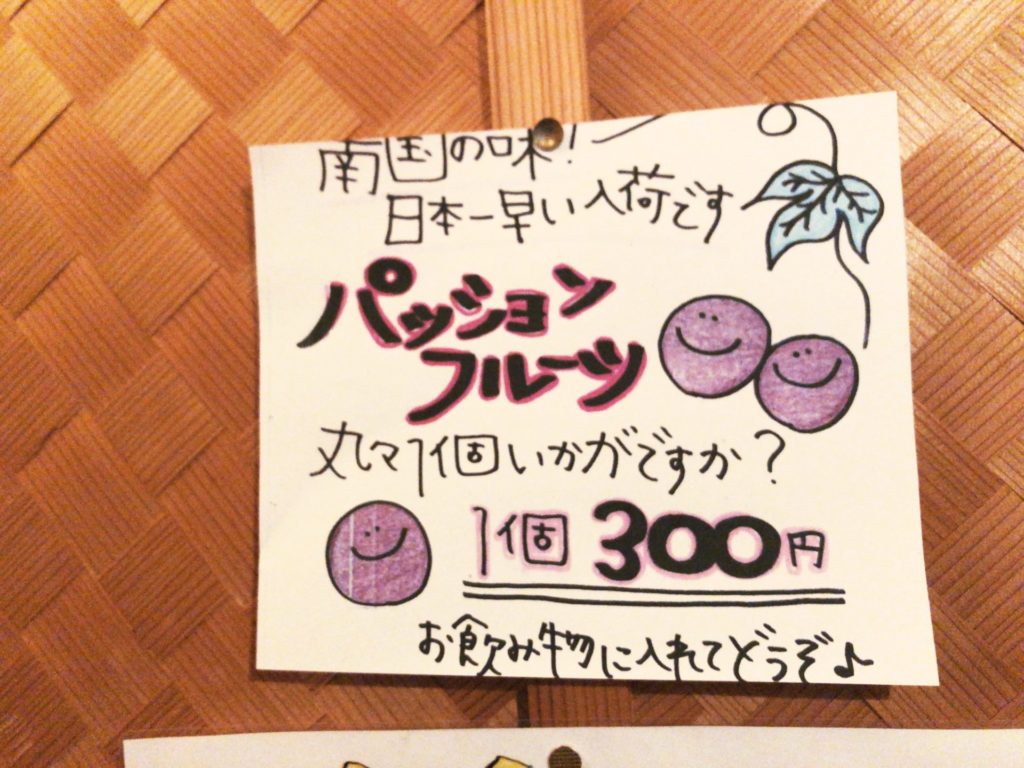 南国の味!
日本一早い入荷です
パッション
フルーツ
丸マ1個いかがですか?
1個 300円
お飲み物に入れてどうぞ♪